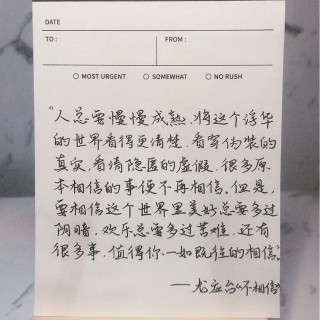 DATE
TO :
FROM :
○ MOST URGENT ○ SOMEWHAT ○ NO RUSH
“人总要慢慢成熟，将这个浮华
的世界看得更清楚，看穿伪装的
真实，看清隐匿的虚假，很多原
本相信的事便不再相信。但是，
要相信这个世界里美好总要多过
阴暗，欢乐总要多过苦难，还有
很多事，值得你一如既往的相信。”
——龙应台《不相信》